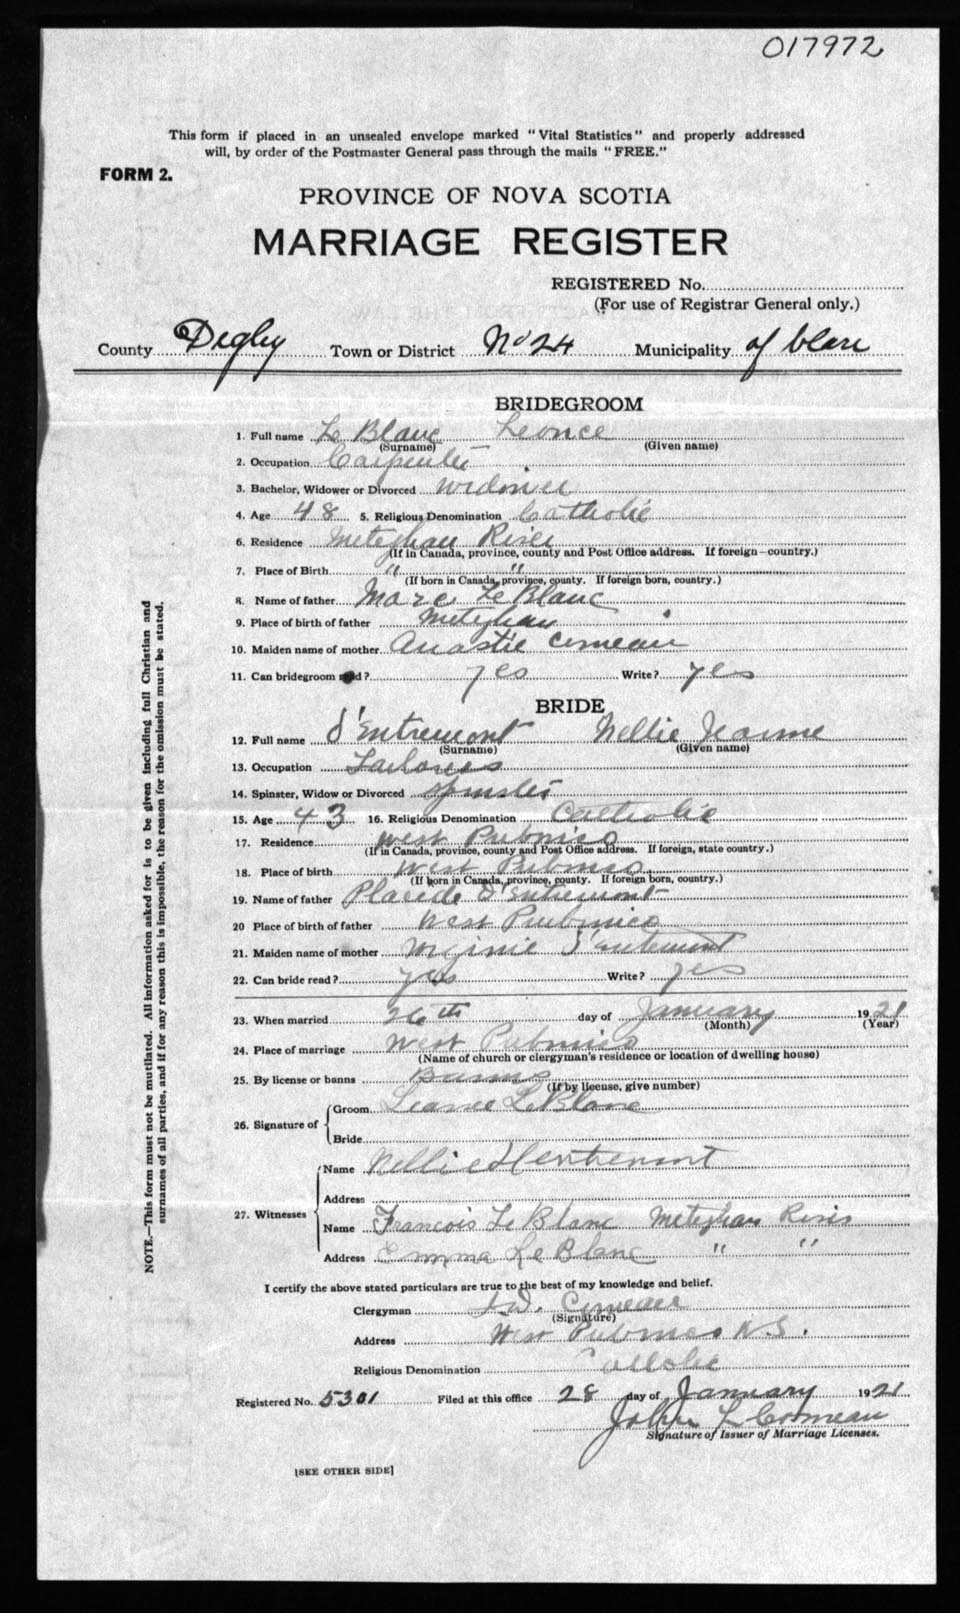 017972
This form if placed in an unsealed envelope marked "Vital Statistics" and properly addressed
will, by order of the Postmaster General pass through the mails "FREE."
FORM 2.
PROVINCE OF NOVA SCOTIA
MARRIAGE REGISTER
REGISTERED No.
(For use of Registrar General only.)
County Digby Town or District No 24 Municipality of Clare
BRIDEGROOM
1. Full name Le Blanc Leonce
(Surname) (Given name)
2. Occupation Carpenter
3. Bachelor, Widower or Divorced widower
4. Age 48 5. Religious Denomination Catholic
6. Residence Meteghan River
(If in Canada, province, county and Post Office address. If foreign—country.)
7. Place of Birth " "
(If born in Canada, province, county. If foreign born, country.)
8. Name of father Marc Le Blanc
9. Place of birth of father Meteghan
10. Maiden name of mother Anastie Comeau
11. Can bridegroom read? yes Write? yes
BRIDE
12. Full name d'Entremont Nellie Jeanne
(Surname) (Given name)
13. Occupation Tailoress
14. Spinster, Widow or Divorced Spinster
15. Age 43 16. Religious Denomination Catholic
17. Residence West Pubnico
(If in Canada, province, county and Post Office address. If foreign, state country.)
18. Place of birth West Pubnico
(If born in Canada, province, county. If foreign born, country.)
19. Name of father Placide d'Entremont
20 Place of birth of father West Pubnico
21. Maiden name of mother Virginie d'Entremont
22. Can bride read? yes Write? yes
23. When married 26th day of January 1921
(Month) (Year)
24. Place of marriage West Pubnico
(Name of church or clergyman's residence or location of dwelling house)
25. By license or banns Banns
(If by license, give number)
26. Signature of Groom Leance LeBlanc
Bride
Name Nellie d'Entremont
Address
27. Witnesses
Name Francois Le Blanc Meteghan River
Address Emma Le Blanc " "
I certify the above stated particulars are true to the best of my knowledge and belief.
Clergyman Comeau
(Signature)
Address West Pubnico N.S.
Religious Denomination Catholic
Registered No. 5301 Filed at this office 28 day of January 1921
John L Comeau
Signature of Issuer of Marriage Licenses.
[SEE OTHER SIDE]
NOTE.—This form must not be mutilated. All information asked for is to be given including full Christian and
surnames of all parties, and if for any reason this is impossible, the reason for the omission must be stated.